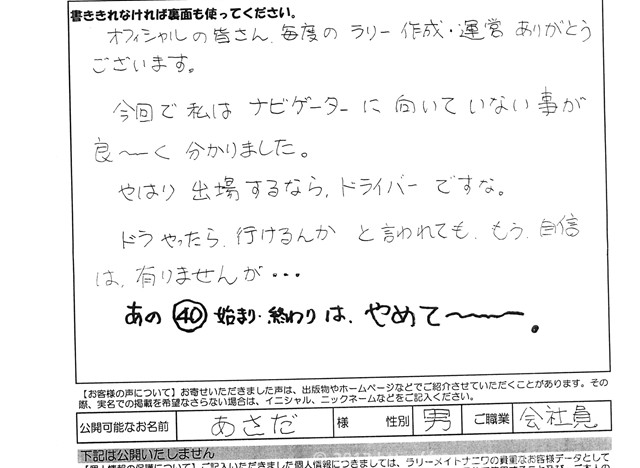 書ききれなければ裏面も使ってください。
オフィシャルの皆さん、毎度の ラリー 作成・運営 ありがとう
ございます。
今回で 私は ナビゲーターに 向いていない事が
良〜く 分かりました。
やはり 出場するなら、ドライバー ですな。
ドラやったら、行けるんか と言われても、もう、自信
は、有りませんが・・・
あの ㊵ 始まり・終わり は、やめて〜〜。
【お客様の声について】お寄せいただきました声は、出版物やホームページなどでご紹介させていただくことがあります。その
際、実名での掲載を希望なさらない場合は、イニシャル、ニックネームなどをご記入ください。
公開可能なお名前 あさだ 様 性別 男 ご職業 会社員
下記は公開いたしません
【個人情報の保護について】ご記入いただきました個人情報につきましては、ラリーメイトナニワの貴重なお客様データとして